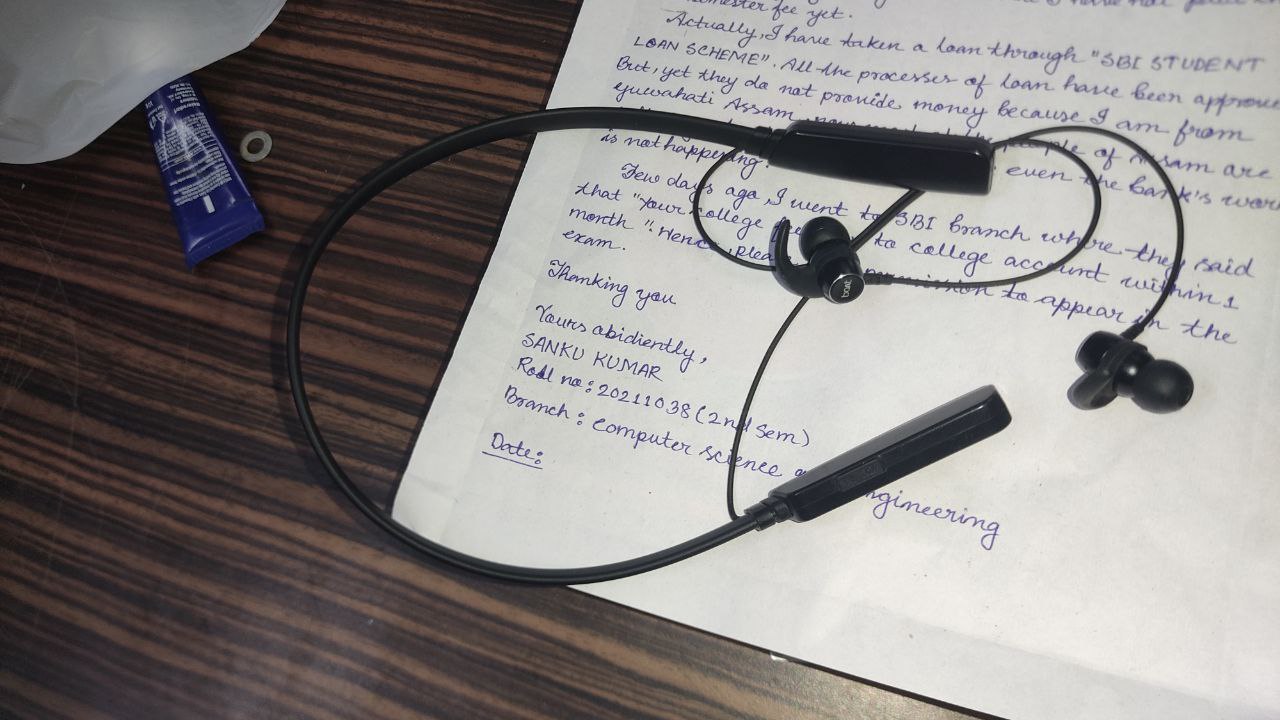 semester fee yet.
Actually, I have taken a loan through "SBI STUDENT
LOAN SCHEME". All the processes of loan have been approved
But, yet they do not provide money because I am from
Guwahati Assam, people of Assam are
is not happening. even the bank's work
Few days ago, I went to SBI branch where they said
that "Your college to college account within 1
month". Hence, permission to appear in the
exam.
Thanking you
Yours abidiently,
SANKU KUMAR
Roll no: 20211038 (2nd Sem)
Branch: Computer science engineering
Date:
boAt